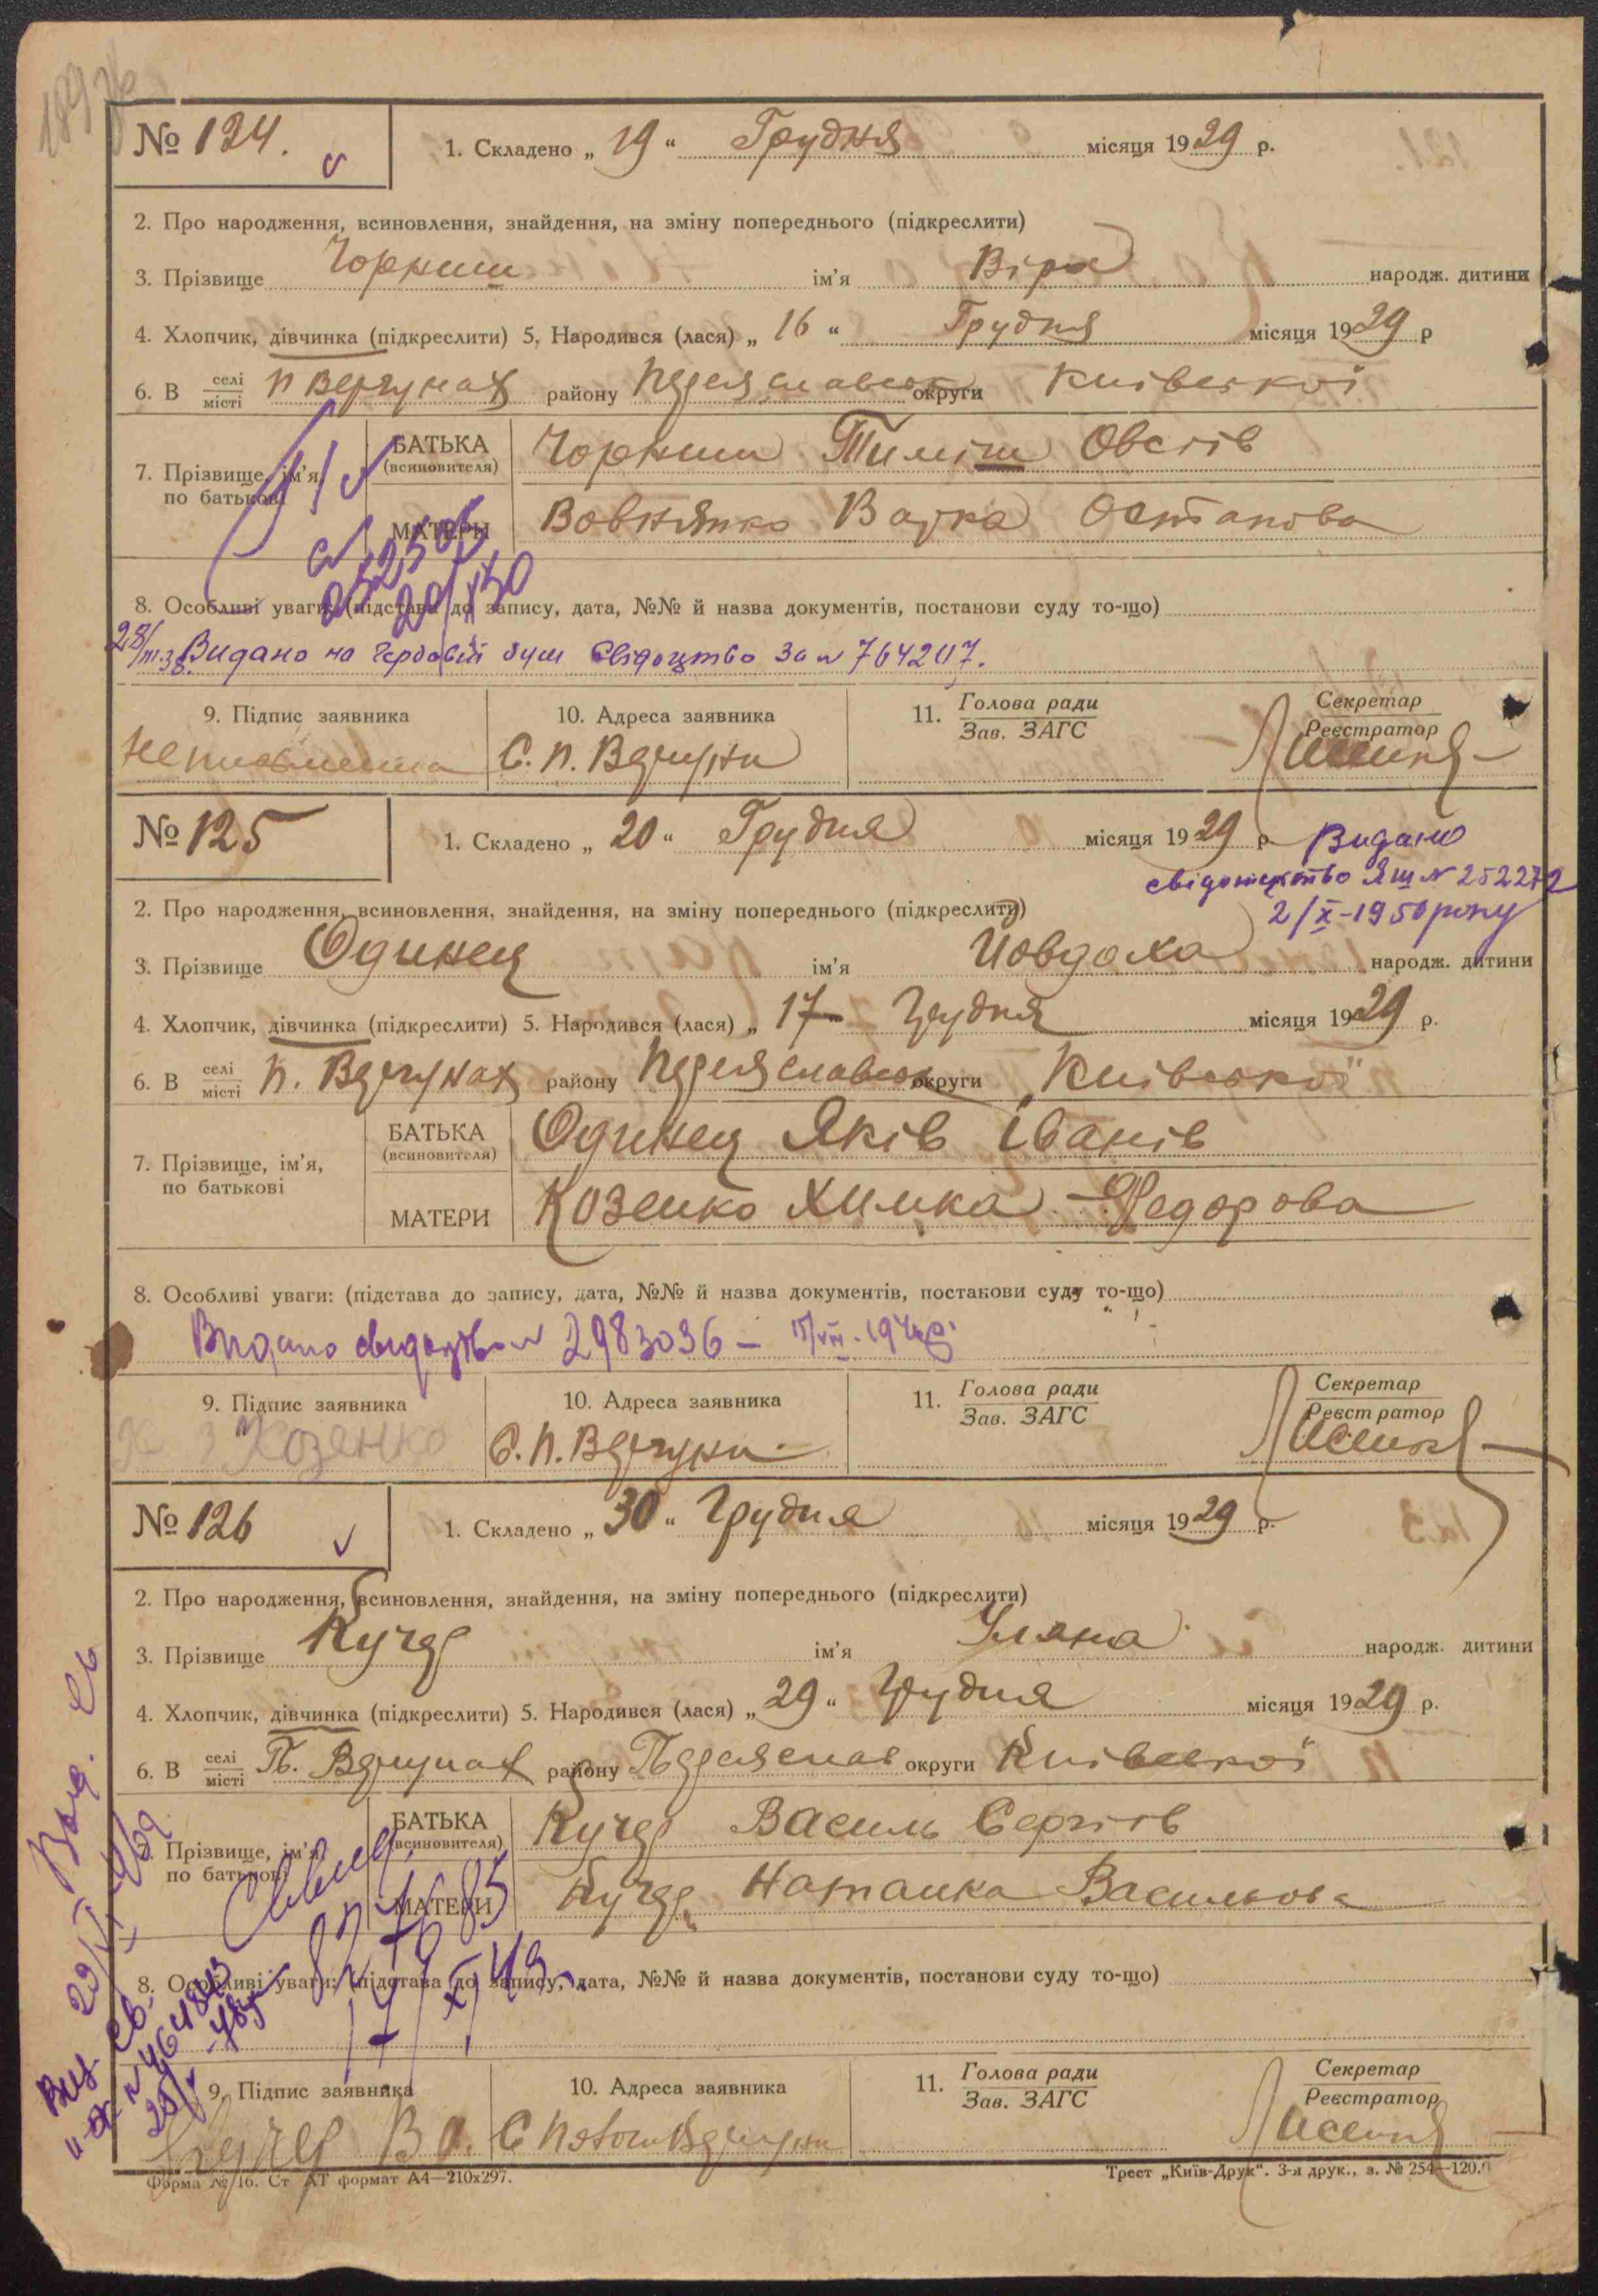 189 зв
№ 124.
1. Складено „ 19 “ Грудня місяця 1929 р.
2. Про народження, всиновлення, знайдення, на зміну попереднього (підкреслити)
3. Прізвище Чорниш ім’я Віра народж. дитини
4. Хлопчик, дівчинка (підкреслити) 5. Народився (лася) „ 16 “ Грудня місяця 1929 р
6. В селі місті П Вергунах району Переяславськ округи Київської
7. Прізвище, ім’я, по батькові
БАТЬКА (всиновителя) Чорниш Тиміш Овсіів
МАТЕРИ Вовнянко Варка Остапова
8. Особливі уваги: (підстава до запису, дата, №№ й назва документів, постанови суду то-що)
28/III.38. Видано на гербовій бум Свідоцтво за № 764207.
9. Підпис заявника
10. Адреса заявника
11. Голова ради Зав. ЗАГС
Секретар Реєстратор
Неписьменна С. П. Вергуни
№ 125
1. Складено „ 20 “ Грудня місяця 1929 р
Видано
свідоцтво ЯШ № 252272
2/X-1950 року
2. Про народження, всиновлення, знайдення, на зміну попереднього (підкреслити)
3. Прізвище Одинец ім’я Йовдоха народж. дитини
4. Хлопчик, дівчинка (підкреслити) 5. Народився (лася) „ 17 Грудня місяця 1929 р.
6. В селі місті П. Вергунах району Переяславськ округи Київської
7. Прізвище, ім’я, по батькові
БАТЬКА (всиновителя) Одинец Яків Іванів
МАТЕРИ Козенко Химка Федорова
8. Особливі уваги: (підстава до запису, дата, №№ й назва документів, постанови суду то-що)
Видано свидоцтво № 2983036 —
9. Підпис заявника
10. Адреса заявника
11. Голова ради Зав. ЗАГС
Секретар Реєстратор
Козенко С. П. Вергуни
№ 126
1. Складено „ 30 “ Грудня місяця 1929 р.
2. Про народження, всиновлення, знайдення, на зміну попереднього (підкреслити)
3. Прізвище Кучер ім’я Уляна народж. дитини
4. Хлопчик, дівчинка (підкреслити) 5. Народився (лася) „ 29 “ Грудня місяця 1929 р.
6. В селі місті П. Вергунах району Переяслав округи Київської
Прізвище, ім’я, по батькові
БАТЬКА (всиновителя) Кучер Василь Сергіів
МАТЕРИ Кучер Наталка Василькова
8. Особливі уваги: (підстава до запису, дата, №№ й назва документів, постанови суду то-що)
9. Підпис заявника
10. Адреса заявника
11. Голова ради Зав. ЗАГС
Секретар Реєстратор
Кучер В
Форма № 16. Ст АТ формат А4—210х297.
Трест „Київ-Друк“. 3-я друк., з. № 254—120.0